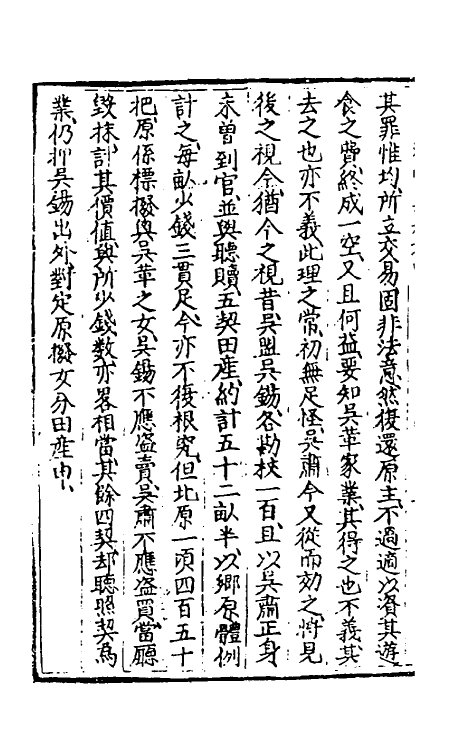 其罪惟均所立交易固非法意然復還原主不過適以資其遊
食之費終成一空又且何益要知吳革家業其得之也不義其
去之也亦不義此理之常初無足怪吳肅今又從而効之将見
後之視今猶今之視昔吳盟吳鍚各勘杖一百且以吳肅正身
未曾到官並與聽贖五契田産約計五十二畝半以鄉原體例
計之每畝少錢三貫足今亦不復根究但北源一項四百五十
把原係標撥與吳革之女吳鍚不應盗賣吳肅不應盗買當廳
毀抹計其價值與所少錢数亦畧相當其餘四契却聽照契為
業仍押吳鍚出外對定原撥女分田産申